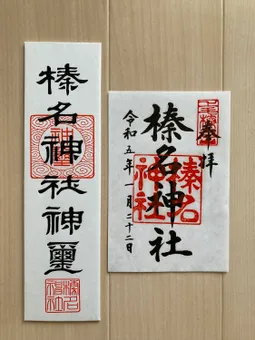 榛名神社神璽
奉拝
榛名神社
令和五年一月二十二日
榛名
神社